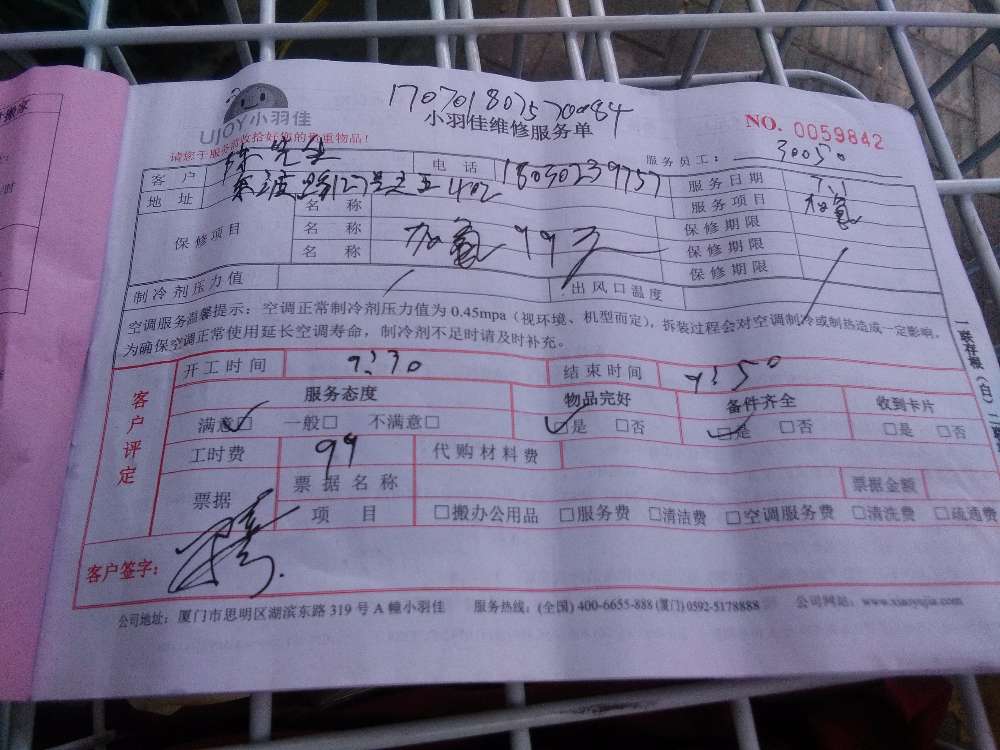 17070180757084
UJOY小羽佳
小羽佳维修服务单
NO. 0059842
请您于服务前收拾好您的贵重物品!
服务员工: 30050
客户 先生 电话 18030239757 服务日期 7.1
地址 路127号之五402 服务项目 加氟
保修项目 名称 保修期限
名称 加氟 99元 保修期限
名称 保修期限
制冷剂压力值 出风口温度
空调服务温馨提示:空调正常制冷剂压力值为0.45mpa(视环境、机型而定),拆装过程会对空调制冷或制热造成一定影响。
为确保空调正常使用延长空调寿命,制冷剂不足时请及时补充。
一联存根(白)
客户评定
开工时间 9:30 结束时间 9:50
服务态度 物品完好 备件齐全 收到卡片
满意☑ 一般□ 不满意□ ☑是 □否 ☑是 □否 □是 □否
工时费 99 代购材料费
票据 票据名称 票据金额
项目 □搬办公用品 □服务费 □清洁费 □空调服务费 □清洗费 □疏通费
客户签字:
公司地址:厦门市思明区湖滨东路319号A幢小羽佳 服务热线:(全国)400-6655-888(厦门)0592-5178888 公司网站:www.xiaoyujia.com